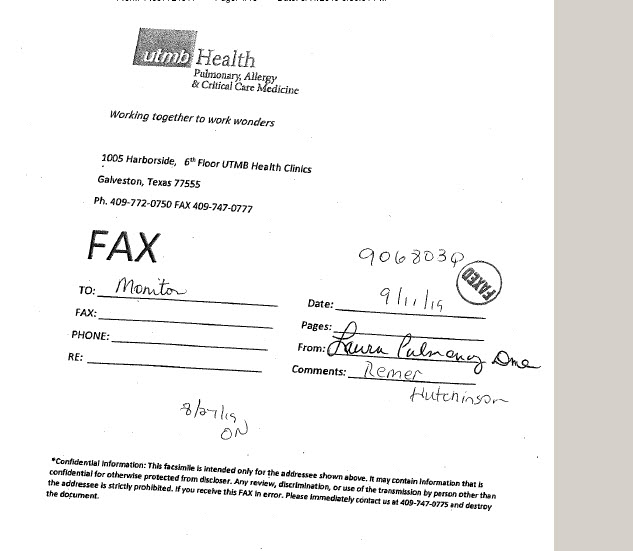 utmb Health
Pulmonary, Allergy
& Critical Care Medicine
Working together to work wonders
1005 Harborside, 6th Floor UTMB Health Clinics
Galveston, Texas 77555
Ph. 409-772-0750 FAX 409-747-0777
FAX
906803Q
FAXED
TO: Monitor
Date: 9/11/19
FAX:
Pages:
PHONE:
From: Laura Pulmonary Dme
RE:
Comments: Remer
Hutchinson
8/27/19
ON
*Confidential Information: This facsimile is intended only for the addressee shown above. It may contain information that is
confidential for otherwise protected from discloser. Any review, discrimination, or use of the transmission by person other than
the addressee is strictly prohibited. If you receive this FAX in error. Please immediately contact us at 409-747-0775 and destroy
the document.